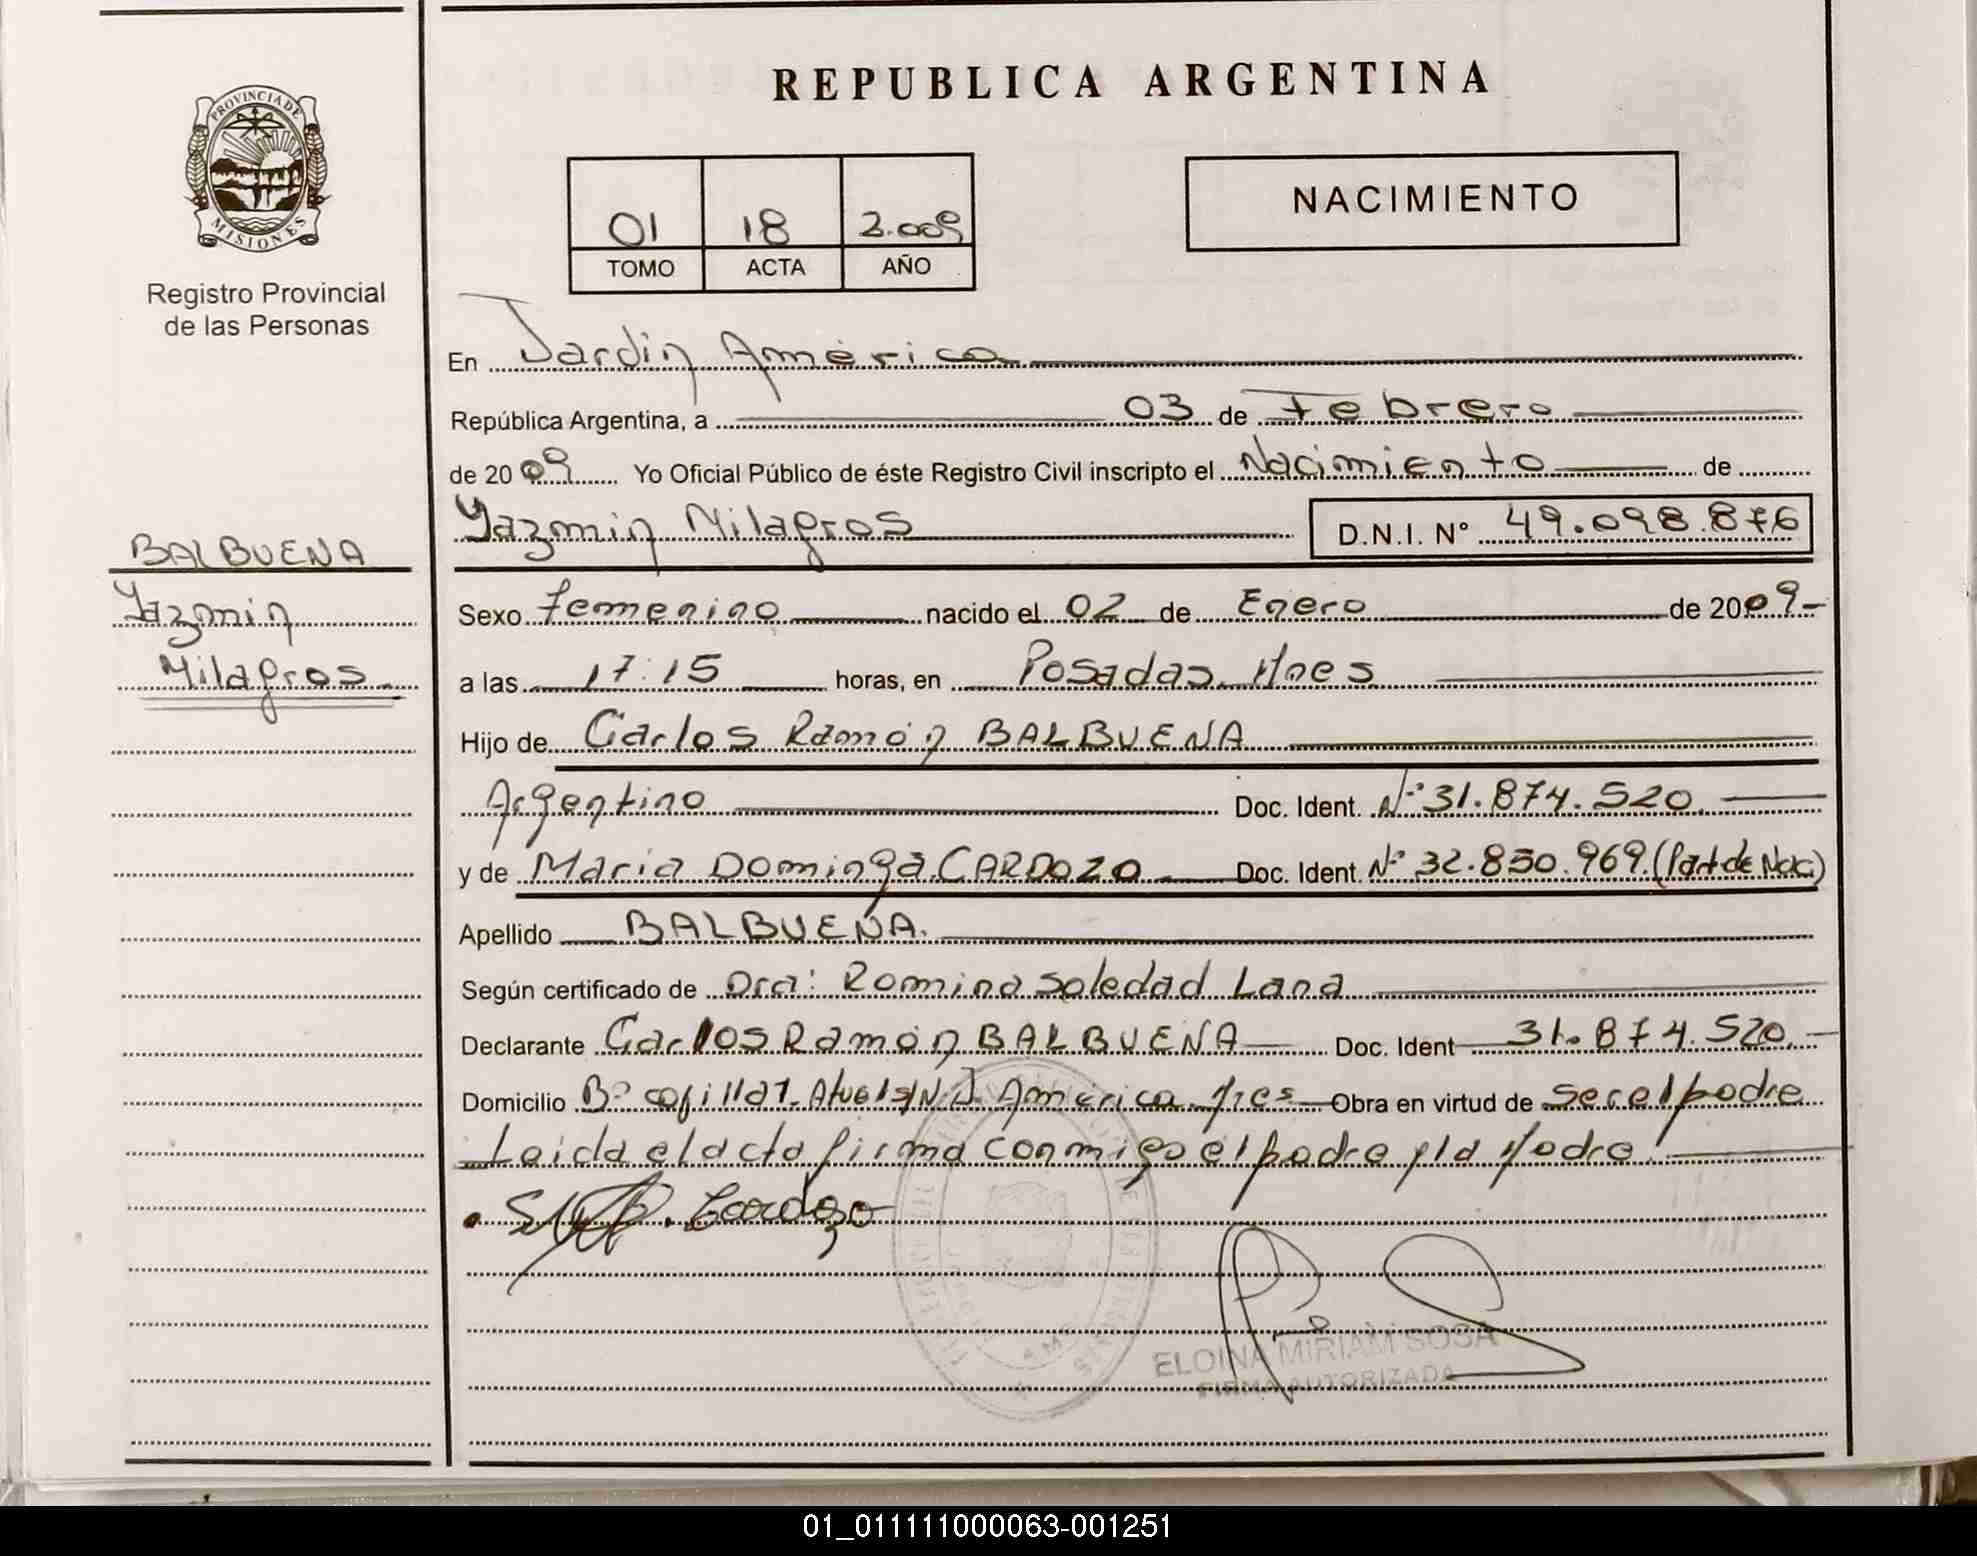 REPUBLICA ARGENTINA
PROVINCIA DE
MISIONES
Registro Provincial
de las Personas
01 18 2.009
TOMO ACTA AÑO
NACIMIENTO
En Jardin América
República Argentina, a 03 de Febrero
de 2009 Yo Oficial Público de éste Registro Civil inscripto el Nacimiento de
Yazmin Milagros D.N.I. N° 49.098.876
BALBUENA
Yazmin
Milagros
Sexo Femenino nacido el 02 de Enero de 2009-
a las 17:15 horas, en Posadas. Mnes
Hijo de Carlos Ramón BALBUENA
Argentino Doc. Ident. N° 31.874.520.
y de Maria Dominga CARDOZO Doc. Ident. N° 32.850.969. (Part de Nac)
Apellido BALBUENA.
Según certificado de Dra: Romina Soledad Lana
Declarante Carlos Ramón BALBUENA Doc. Ident 31.874.520.-
Domicilio B° S/N. J. América. Mnes Obra en virtud de Ser el padre
Leida el acta firma conmigo el padre y la Madre.
Cardozo
ELOINA MIRIAM SOSA
FIRMA AUTORIZADA
01_011111000063-001251